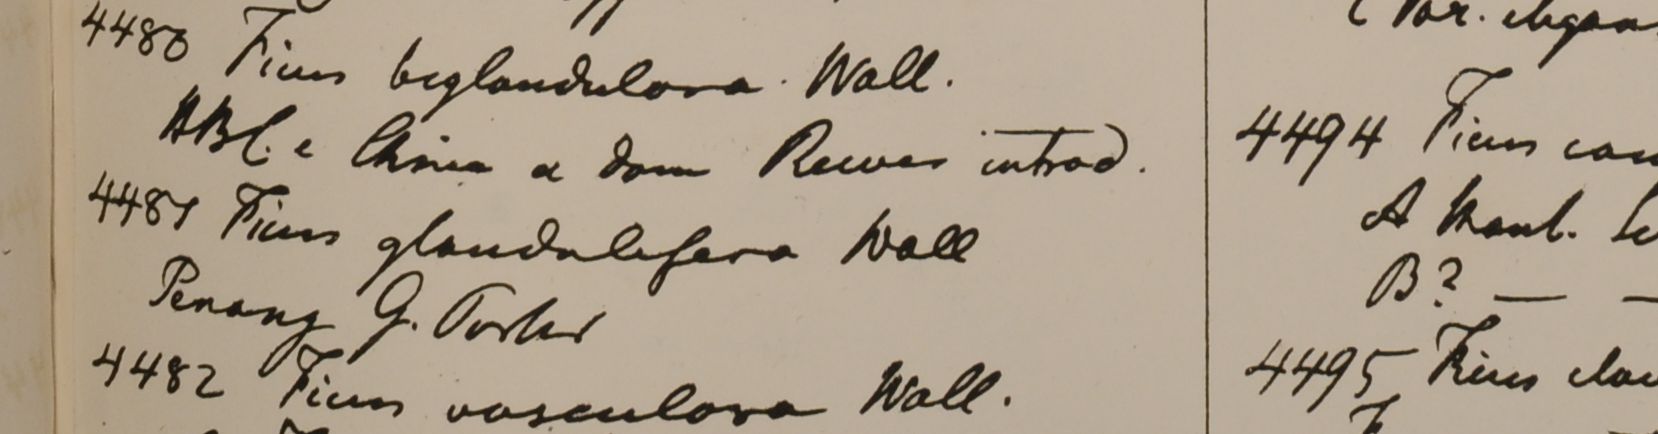 4480 Ficus beglandulosa. Wall.
HBC. e China a dom Reeves introd.
4481 Ficus glandulifera Wall
Penang G. Porter
4482 Ficus vasculosa Wall.
Var. elegans
4494 Ficus
A
B? — —
4495 Ficus